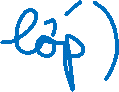 lớp)